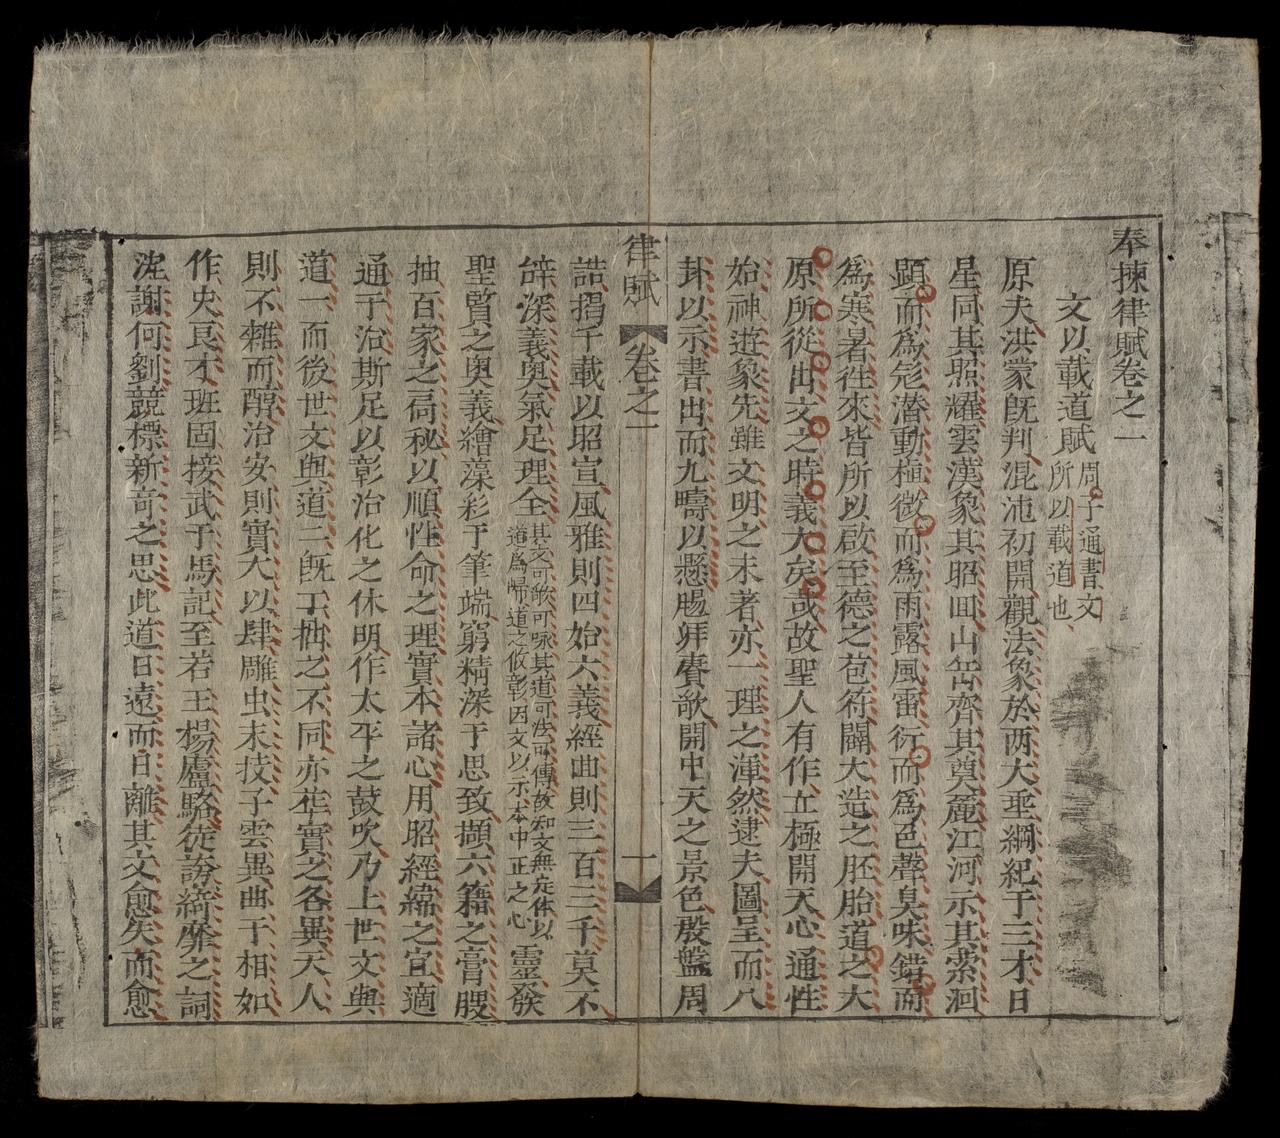 奉揀律賦卷之一
文以載道賦 周子通書文所以載道也
原夫洪蒙旣判混沌初開觀法象於两大埀綱紀于三才日
星同其照耀雲漢象其昭囬山岳齊其奠麗江河示其濚洄
顕而為 潜動植微而為雨露風雷衍而為色聲臭味錯而
為寒暑徃來皆所以啟至德之苞符闢大造之胚胎道之大
原所從出文之時義大矣㢤故聖人有作立極開天心通性
始神遊象先雖文明之未著亦一理之渾然逮夫圖呈而八
卦以示書出而九疇以懸賜拜賡歌開中天之景色殷盤周
律賦 卷之一 一
誥揭千載以昭宣風雅則四始六義經曲則三百三千莫不
辝深義奥氣足理全 其文可歌可咏其道可法可傳故知文無定体以道爲歸道之攸彰因文以示本中正之心 靈發
聖賢之奥義繪藻彩于筆端窮精深于思致擷六籍之膏腴
抽百家之高秘以順性命之理實本諸心用昭經緯之宜適
通于治斯足以彰治化之休明作太平之鼓吹乃上世文與
道一而後世文與道二旣工拙之不同亦華實之各異天人
則不雜而醇治安則實大以肆雕虫末技子雲異曲于相如
作史良才班固接武于馬記至若王楊盧駱徒誇綺靡之詞
沈謝何劉競標新竒之思此道日遠而日離其文愈矣而愈